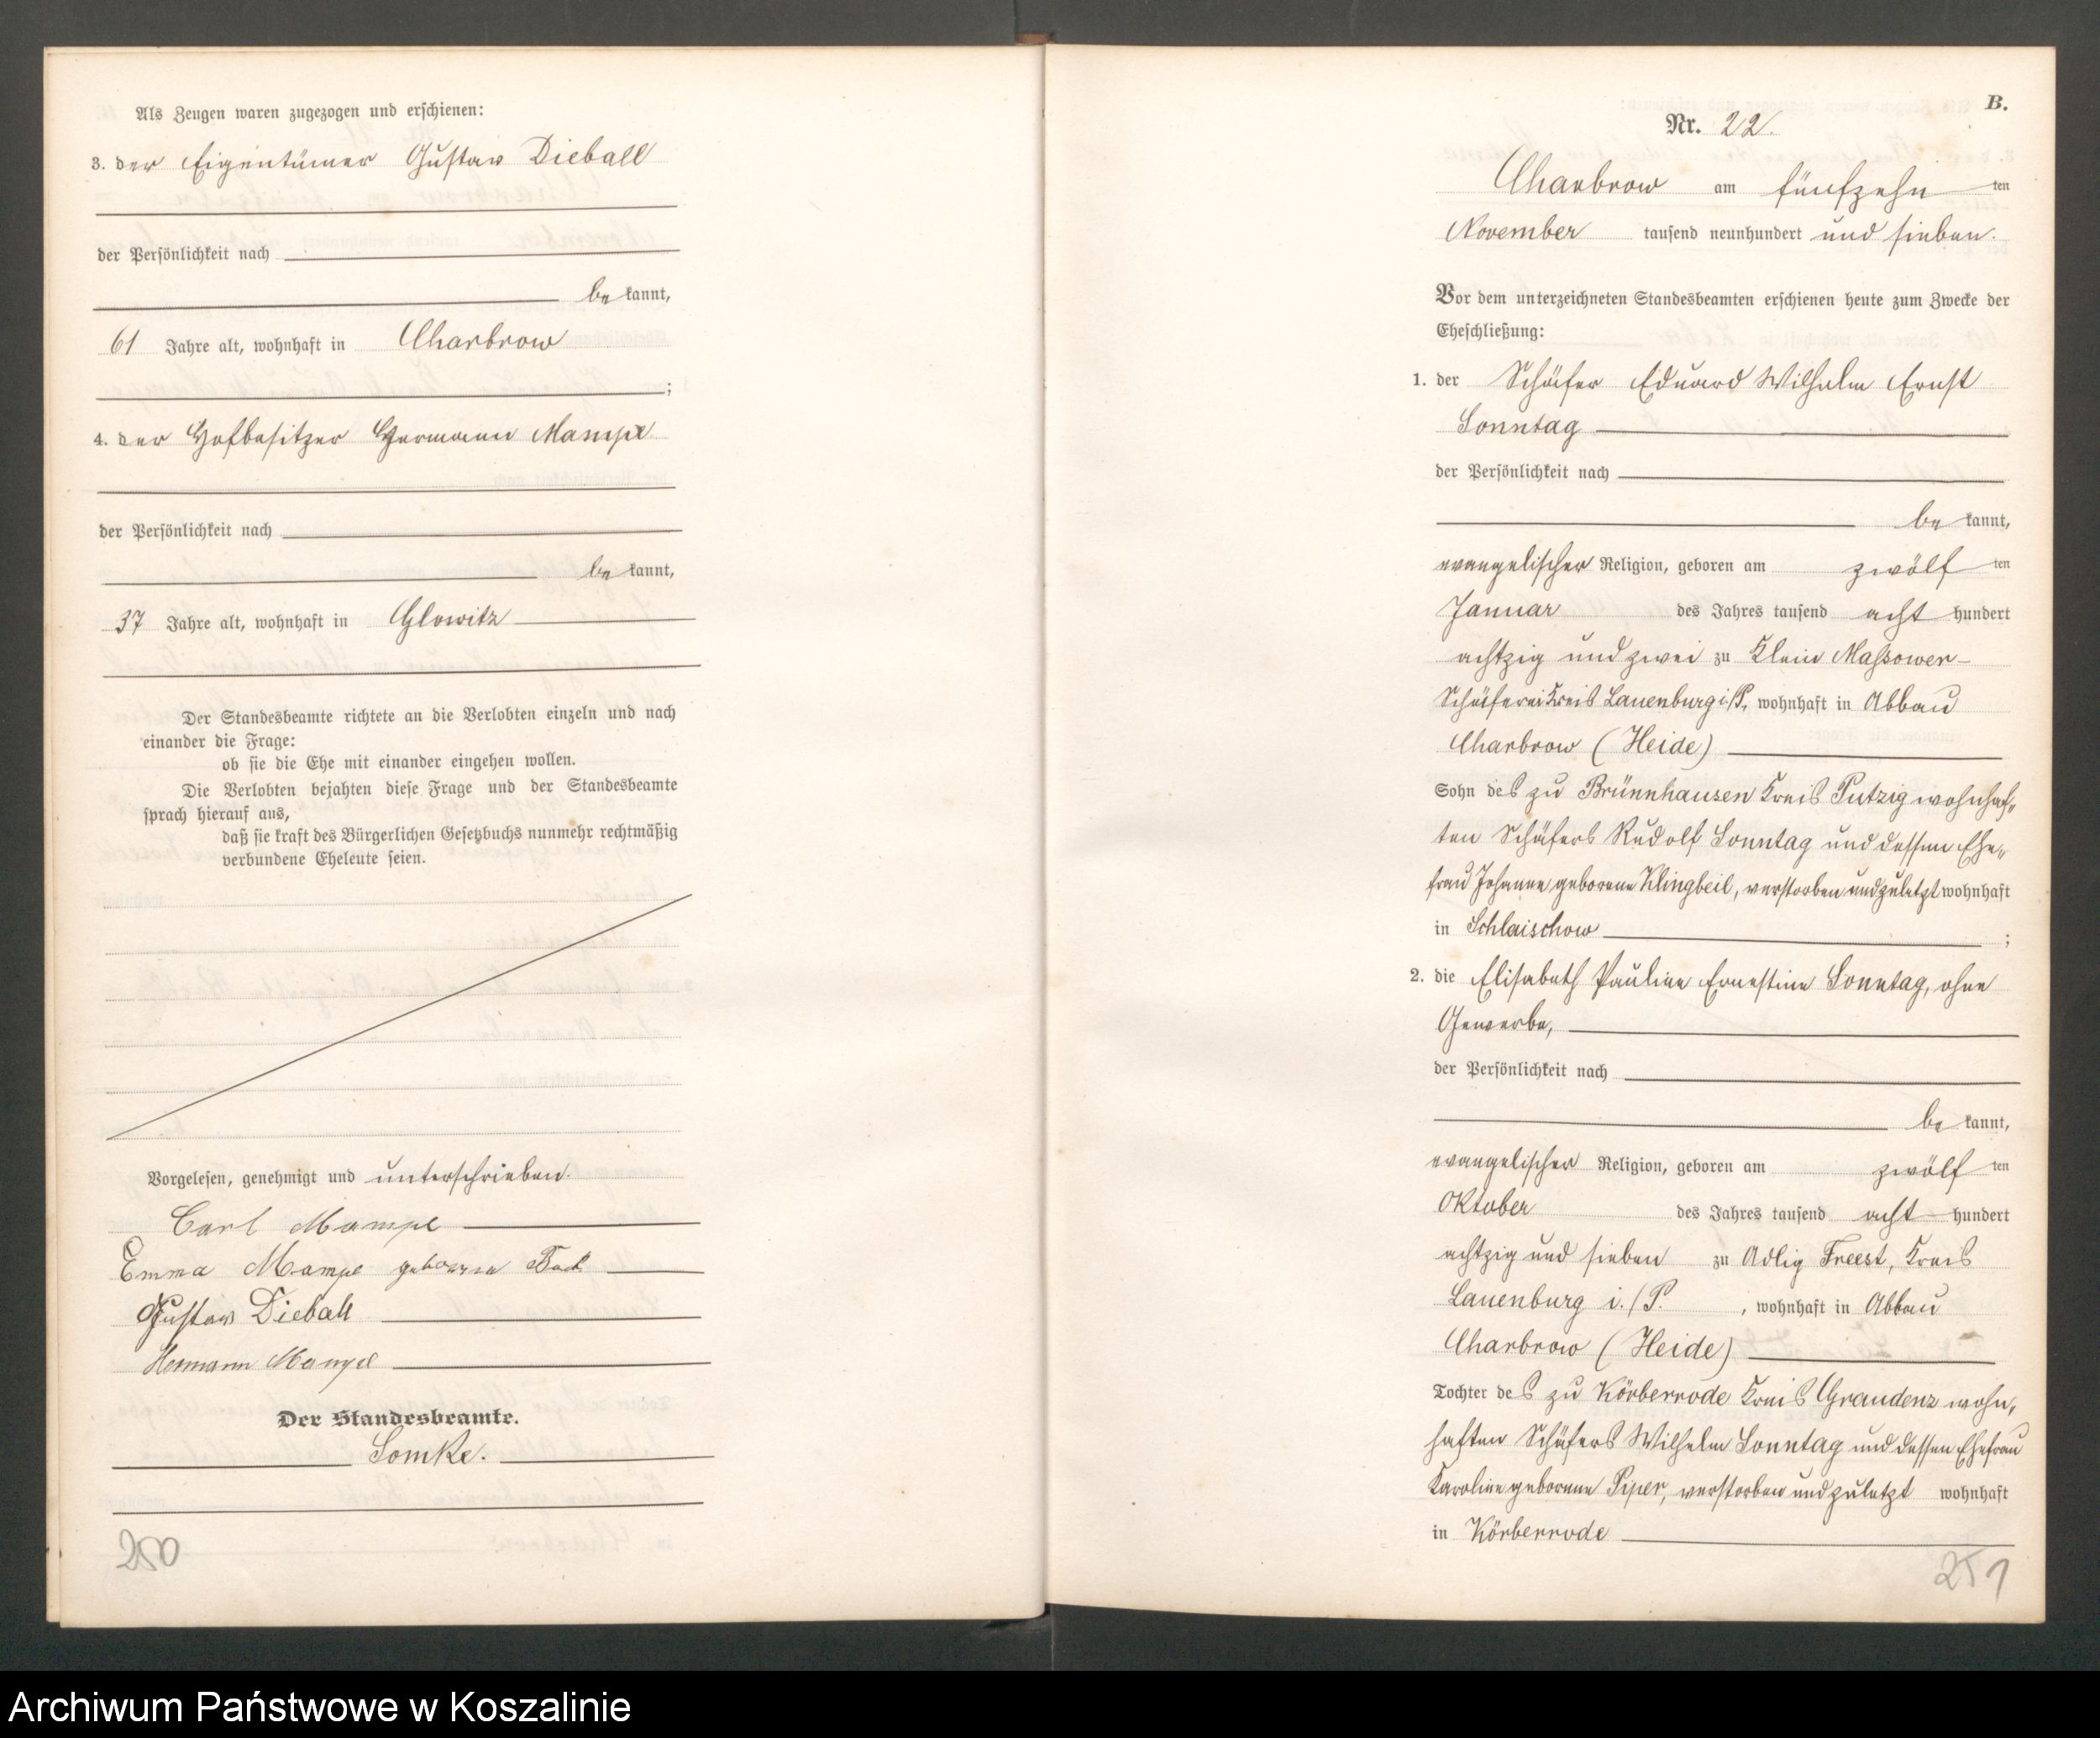 Als Zeugen waren zugezogen und erschienen:
3. der Eigentümer Gustav Dieball
der Persönlichkeit nach
be kannt,
61 Jahre alt, wohnhaft in Charbrow
;
4. der Hofbesitzer Hermann Mampe
der Persönlichkeit nach
be kannt,
37 Jahre alt, wohnhaft in Glowitz
Der Standesbeamte richtete an die Verlobten einzeln und nach
einander die Frage:
ob sie die Ehe mit einander eingehen wollen.
Die Verlobten bejahten diese Frage und der Standesbeamte
sprach hierauf aus,
daß sie kraft des Bürgerlichen Gesetzbuchs nunmehr rechtmäßig
verbundene Eheleute seien.
Vorgelesen, genehmigt und unterschrieben.
Carl Mampe
Emma Mampe geborene
Gustav Dieball
Hermann Mampe
Der Standesbeamte.
Somke.
250
B.
Nr. 22.
Charbrow am fünfzehn ten
November tausend neunhundert und sieben.
Vor dem unterzeichneten Standesbeamten erschienen heute zum Zwecke der
Eheschließung:
1. der Schäfer Eduard Wilhelm Ernst
Sonntag
der Persönlichkeit nach
be kannt,
evangelischer Religion, geboren am zwölf ten
Januar des Jahres tausend acht hundert
achtzig und zwei zu Klein Massower-
Schäferei Kreis Lauenburg i/P., wohnhaft in Abbau
Charbrow (Heide)
Sohn des zu Brünnhausen Kreis Putzig wohnhaf„
ten Schäfers Rudolf Sonntag und dessen Ehe„
frau Johanne geborene Klingbeil, verstorben und zuletzt wohnhaft
in Schlaischow ;
2. die Elisabeth Pauline Ernestine Sonntag, ohne
Gewerbe,
der Persönlichkeit nach
be kannt,
evangelischer Religion, geboren am zwölf ten
Oktober des Jahres tausend acht hundert
achtzig und sieben zu Adlig Freest, Kreis
Lauenburg i./P. , wohnhaft in Abbau
Charbrow (Heide)
Tochter des zu Körberrode Kreis Graudenz wohn„
haften Schäfers Wilhelm Sonntag und dessen Ehefrau
Karoline geborene Piper, verstorben und zuletzt wohnhaft
in Körberrode
251
Archiwum Państwowe w Koszalinie